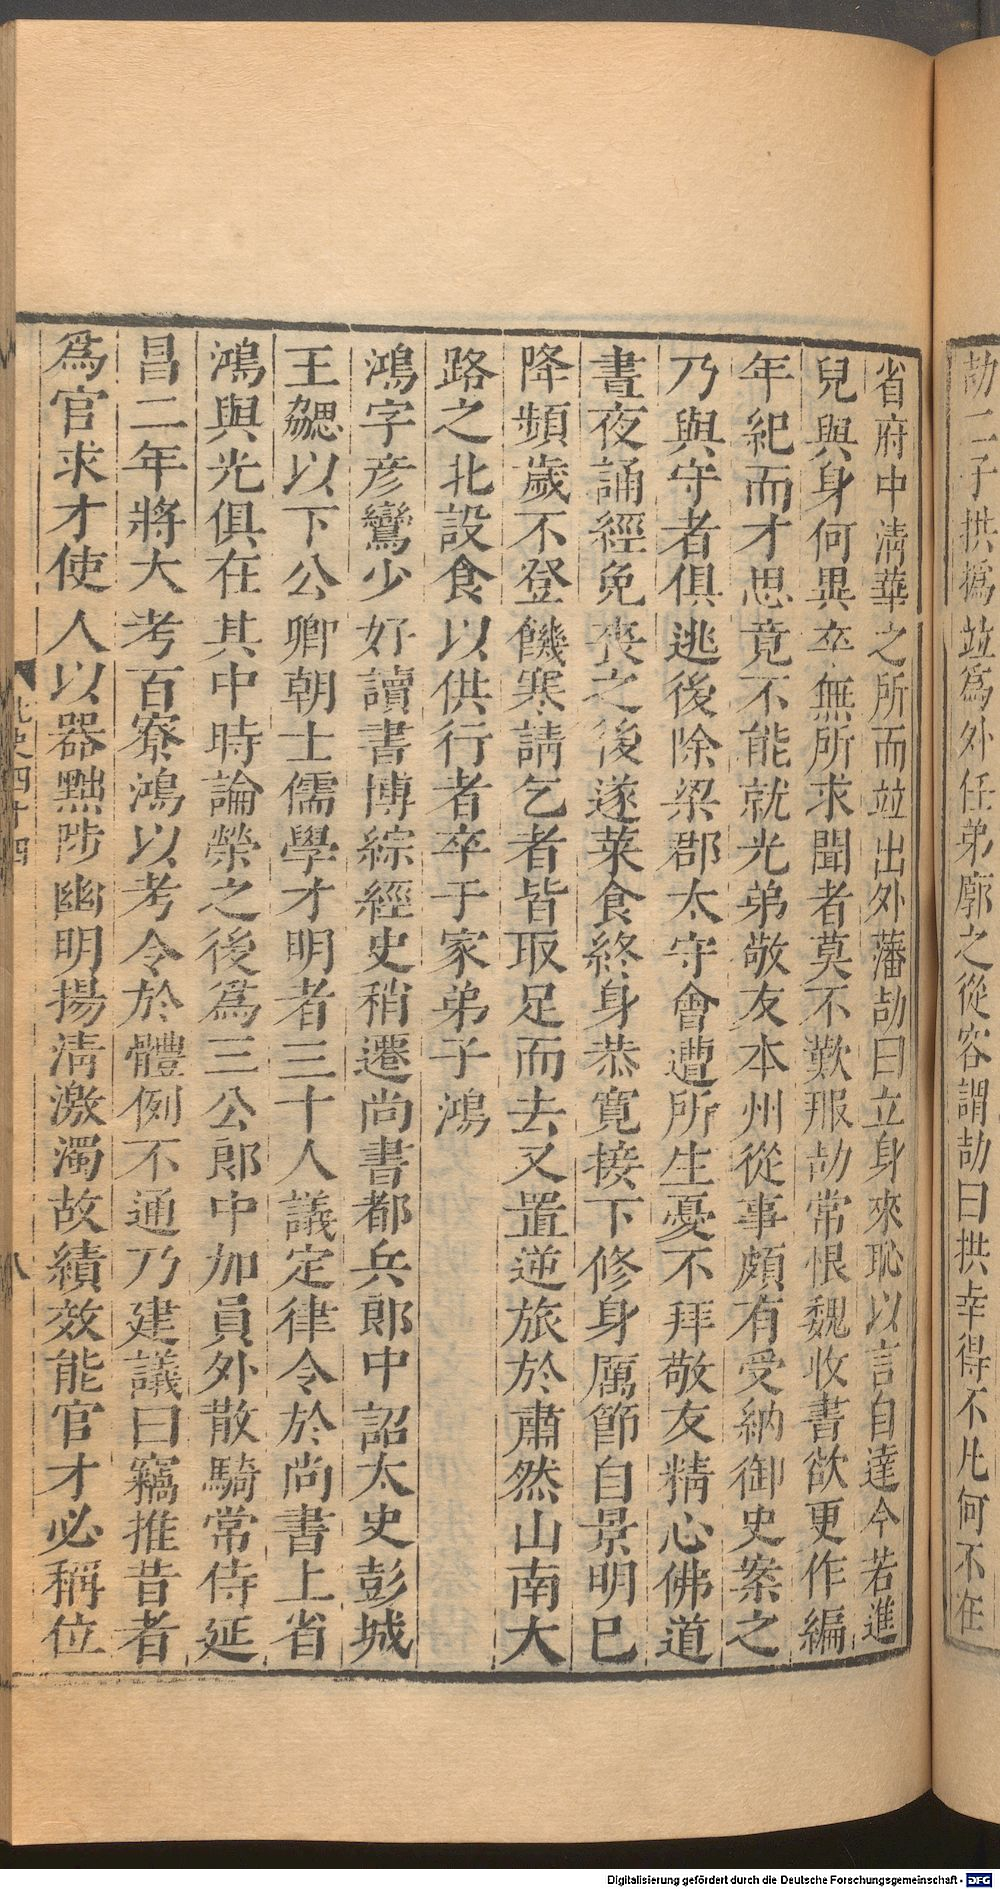 劼二子拱撝並爲外任弟廓之從容謂劼曰拱幸得不凡何不在
省府中淸華之所而並出外藩劼曰立身來恥以言自達今若進
兒與身何異卒無所求聞者莫不歎服劼常恨魏收書欲更作編
年紀而才思竟不能就光弟敬友本州從事頗有受納御史案之
乃與守者俱逃後除梁郡太守會遭所生憂不拜敬友精心佛道
晝夜誦經免喪之後遂菜食終身恭寬接下修身厲節自景明已
降頻歲不登饑寒請乞者皆取足而去又置逆旅於肅然山南大
路之北設食以供行者卒于家弟子鴻
鴻字彦鸞少好讀書博綜經史稍遷尚書都兵郎中詔太史彭城
王勰以下公卿朝士儒學才明者三十人議定律令於尚書上省
鴻與光俱在其中時論榮之後爲三公郎中加員外散騎常侍延
昌二年將大考百寮鴻以考令於體例不通乃建議曰竊推昔者
爲官求才使人以器黜陟幽明揚淸激濁故績效能官才必稱位
北史四十四
八
Digitalisierung gefördert durch die Deutsche Forschungsgemeinschaft - DFG